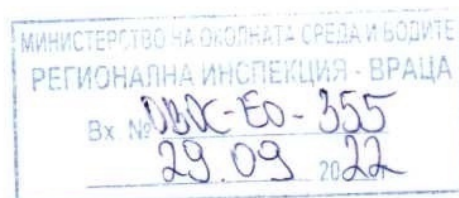 МИНИСТЕРСТВО НА ОКОЛНАТА СРЕДА И ВОДИТЕ
РЕГИОНАЛНА ИНСПЕКЦИЯ - ВРАЦА
Вх № ОВОС-ЕО-355
29.09 2022